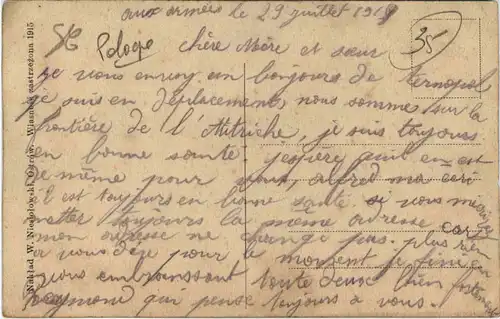 aux armées le 29 juillet 1919
Pologe
35
chère Mère et sœur
je vous envoy un bonjours de ternopol
je suis en déplacement, nous somme sur la
frontière de l'Autriche, je suis toujours
en bonne santé j'espère quil en est
de même pour vous, alfred ma ecri
il est toujours en bonne santé si vous
metter toujours la même adresse car
mon adresse ne change pas. plus rien
a vous dire pour le moment je fini en
vous embrassant toute deux bien fortement
Raymond qui pense toujours a vous.
Nakład W. Niedołowski, Ostrów. Własność zastrzeżona 1915